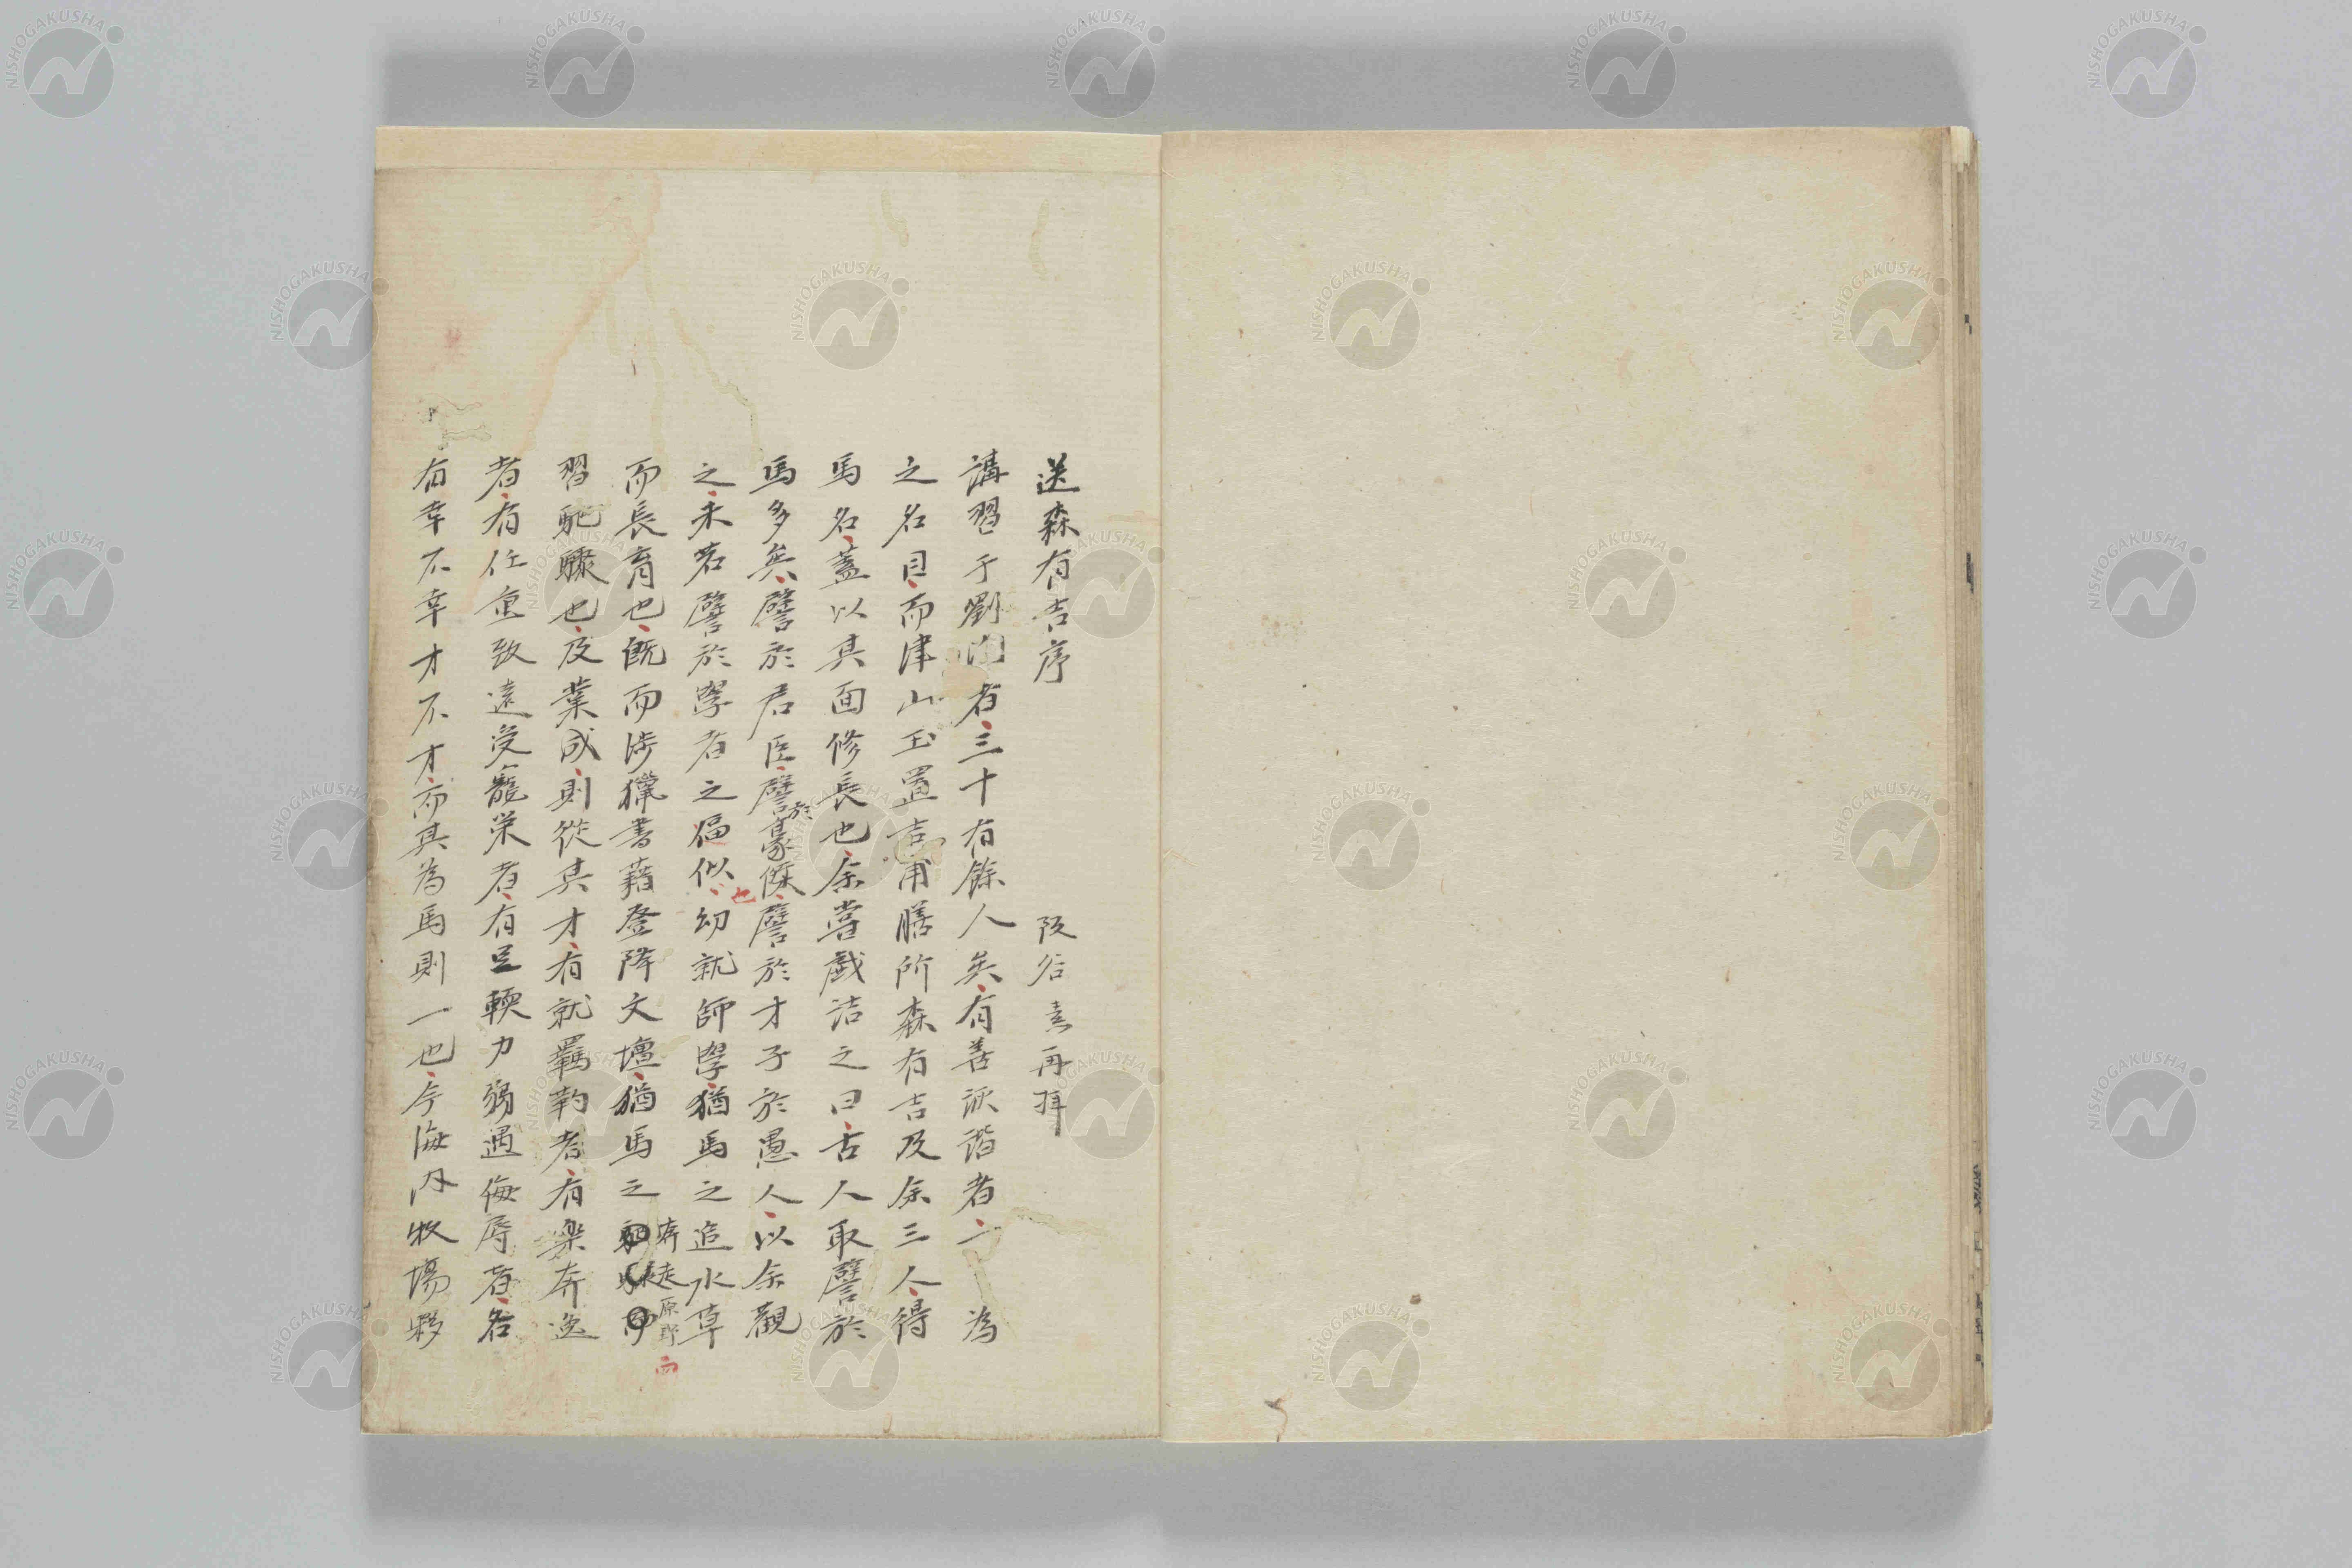 送森有吉序
阪谷素再拝
講習于劉 者三十有餘人矣有善詼諧者一一為
之名目而津山玉置吉甫膳所森有吉及余三人得
馬名蓋以其面修長也余嘗戲詰之曰古人取譬於
馬多矣譬於君臣譬於豪傑譬於才子於愚人以余觀
之未若譬於學者之福似也幼就師學猶馬之追水草
而長育也既而涉獵書籍登降文壇猶馬之奔走原野而
習馳驟也及業成則從其才有就羈靮者有樂奔逸
者有任重致遠受寵栄者有足輭力弱遇侮辱者各
有幸不幸才不才而其為馬則一也今海内牧場夥
NISHOGAKUSHA